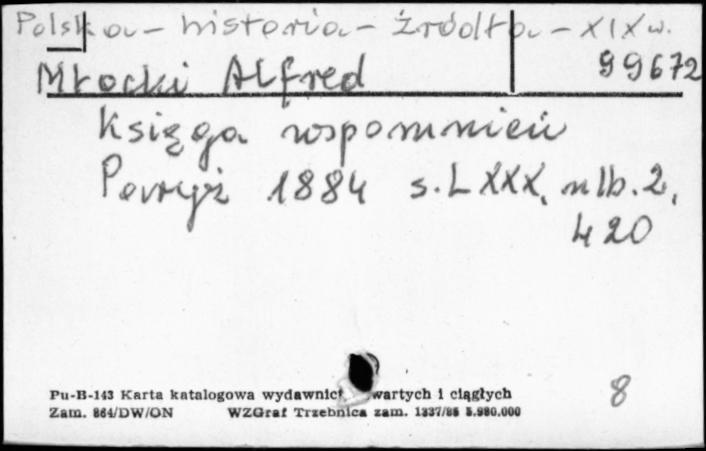 Polska - historia - źródła - XIX w.
Młocki Alfred 99672
Księga wspomnień
Paryż 1884 s. LXXX, nlb. 2,
420
Pu-B-143 Karta katalogowa wydawnict wartych i ciągłych
Zam. 864/DW/ON WZGraf Trzebnica zam. 1337/86 5.980.000
8